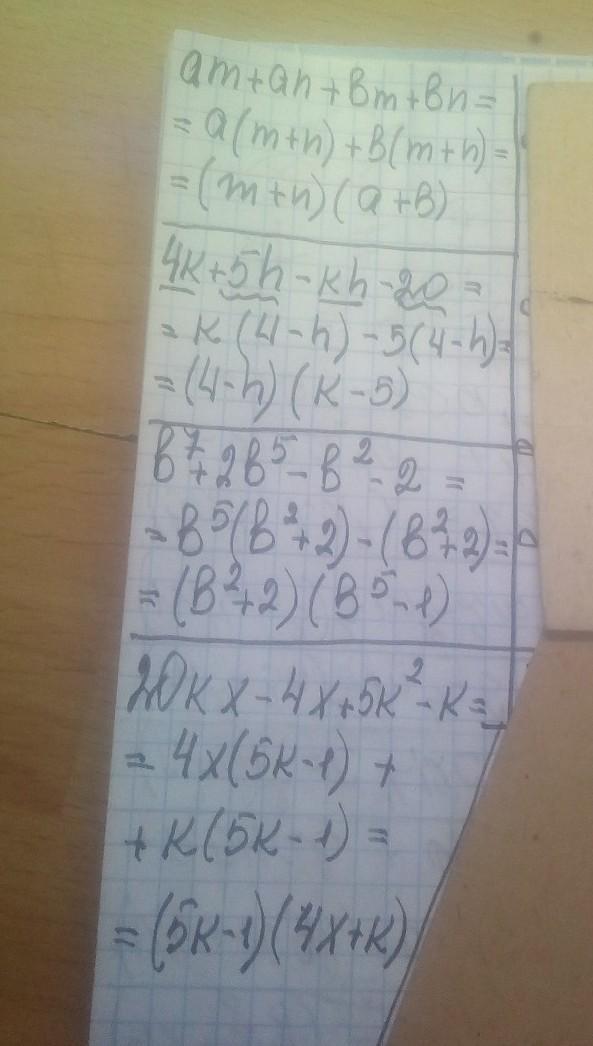 am+an+bm+bn=
=a(m+n)+b(m+n)=
=(m+n)(a+b)
4k+5n-kn-20=
=k(4-n)-5(4-n)=
=(4-n)(k-5)
b⁷+2b⁵-b²-2=
=b⁵(b²+2)-(b²+2)=
=(b²+2)(b⁵-1)
20kx-4x+5k²-k=
=4x(5k-1)+
+k(5k-1)=
=(5k-1)(4x+k)